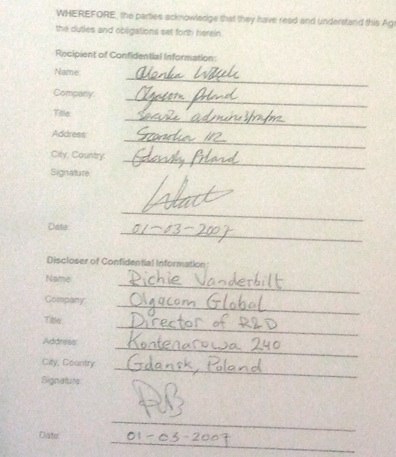 WHEREFORE, the parties acknowledge that they have read and understand this Ag
the duties and obligations set forth herein.
Recipient of Confidential Information:
Name:
Company: Olgacom Poland
Title: administrator
Address: 112
City, Country: Gdansk, Poland
Signature:
Date: 01-03-2007
Discloser of Confidential Information:
Name: Richie Vanderbilt
Company: Olgacom Global
Title: Director of R&D
Address: Kontenarowa 240
City, Country: Gdansk, Poland
Signature:
Date: 01-03-2007